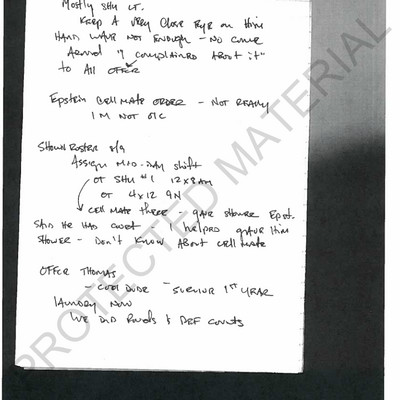 Mostly SHU LT.
Keep A Very Close Eye on Him
Hand wave not enough - No come
Around "I complained About it"
to All
Epstein Cellmate order - Not Really
I'm not OIC
Shown Roster 8/9
Assign Mid-day shift
OT SHU #1 12x8AM
OT 4x12 9N
Cell mate there - gave shower Epst.
Said He Had - I helped gave Him
Shower - Don't know About cell mate
Officer Thomas
- Cool Dude - Survivor 1st year
laundry Now
We Did Rounds & DEF counts
PROTECTED MATERIAL